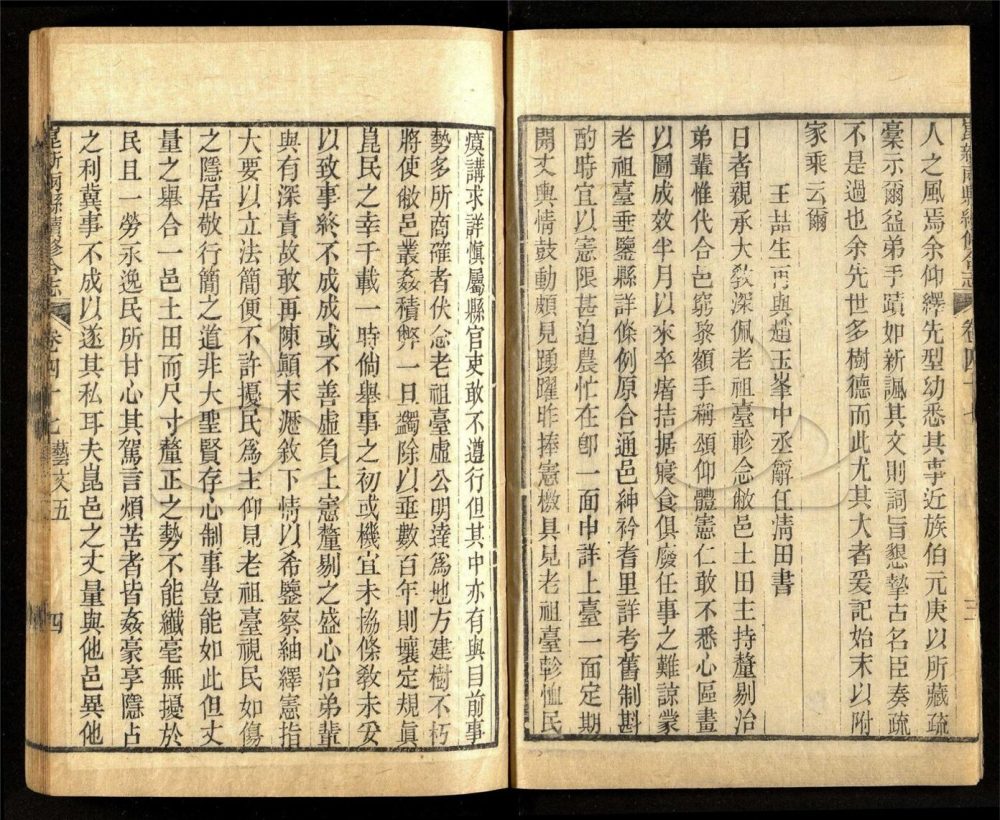 人之風焉余仰繹先型幼悉其事近族伯元庚以所藏疏
稾示爾益弟手蹟如新諷其文則詞旨懇摯古名臣奏疏
不是過也余先世多樹德而此尤其大者爰記始末以附
家乘云爾
王喆生再與趙玉峯中丞辭任淸田書
日者親承大敎深佩老祖臺軫念敝邑土田主持釐剔治
弟輩惟代合邑窮黎額手稱頌仰體憲仁敢不悉心區畫
以圖成效半月以來卒瘏拮据寢食俱廢任事之難諒蒙
老祖臺垂鑒縣詳條例原合通邑紳衿耆里詳考舊制斟
酌時宜以憲限甚迫農忙在卽一面申詳上臺一面定期
開丈輿情鼓動頗見踴躍昨捧憲檄具見老祖臺軫恤民
瘼講求詳愼屬縣官吏敢不遵行但其中亦有與目前事
勢多所商確者伏念老祖臺虛公明達爲地方建樹不朽
將使敝邑叢姦積弊一旦蠲除以垂數百年則壤定規眞
崑民之幸千載一時倘舉事之初或機宜未協條敎未妥
以致事終不成成或不善虛負上憲釐剔之盛心治弟輩
與有深責故敢再陳顚末瀝敘下情以希鑒察紬繹憲指
大要以立法簡便不許擾民爲主仰見老祖臺視民如傷
之隱居敬行簡之道非大聖賢存心制事豈能如此但丈
量之舉合一邑土田而尺寸釐正之勢不能纖毫無擾於
民且一勞永逸民所甘心其駕言煩苦者皆姦豪享隱占
之利冀事不成以遂其私耳夫崑邑之丈量與他邑異他
崑新兩縣續修合志
卷四十七 藝文五
四